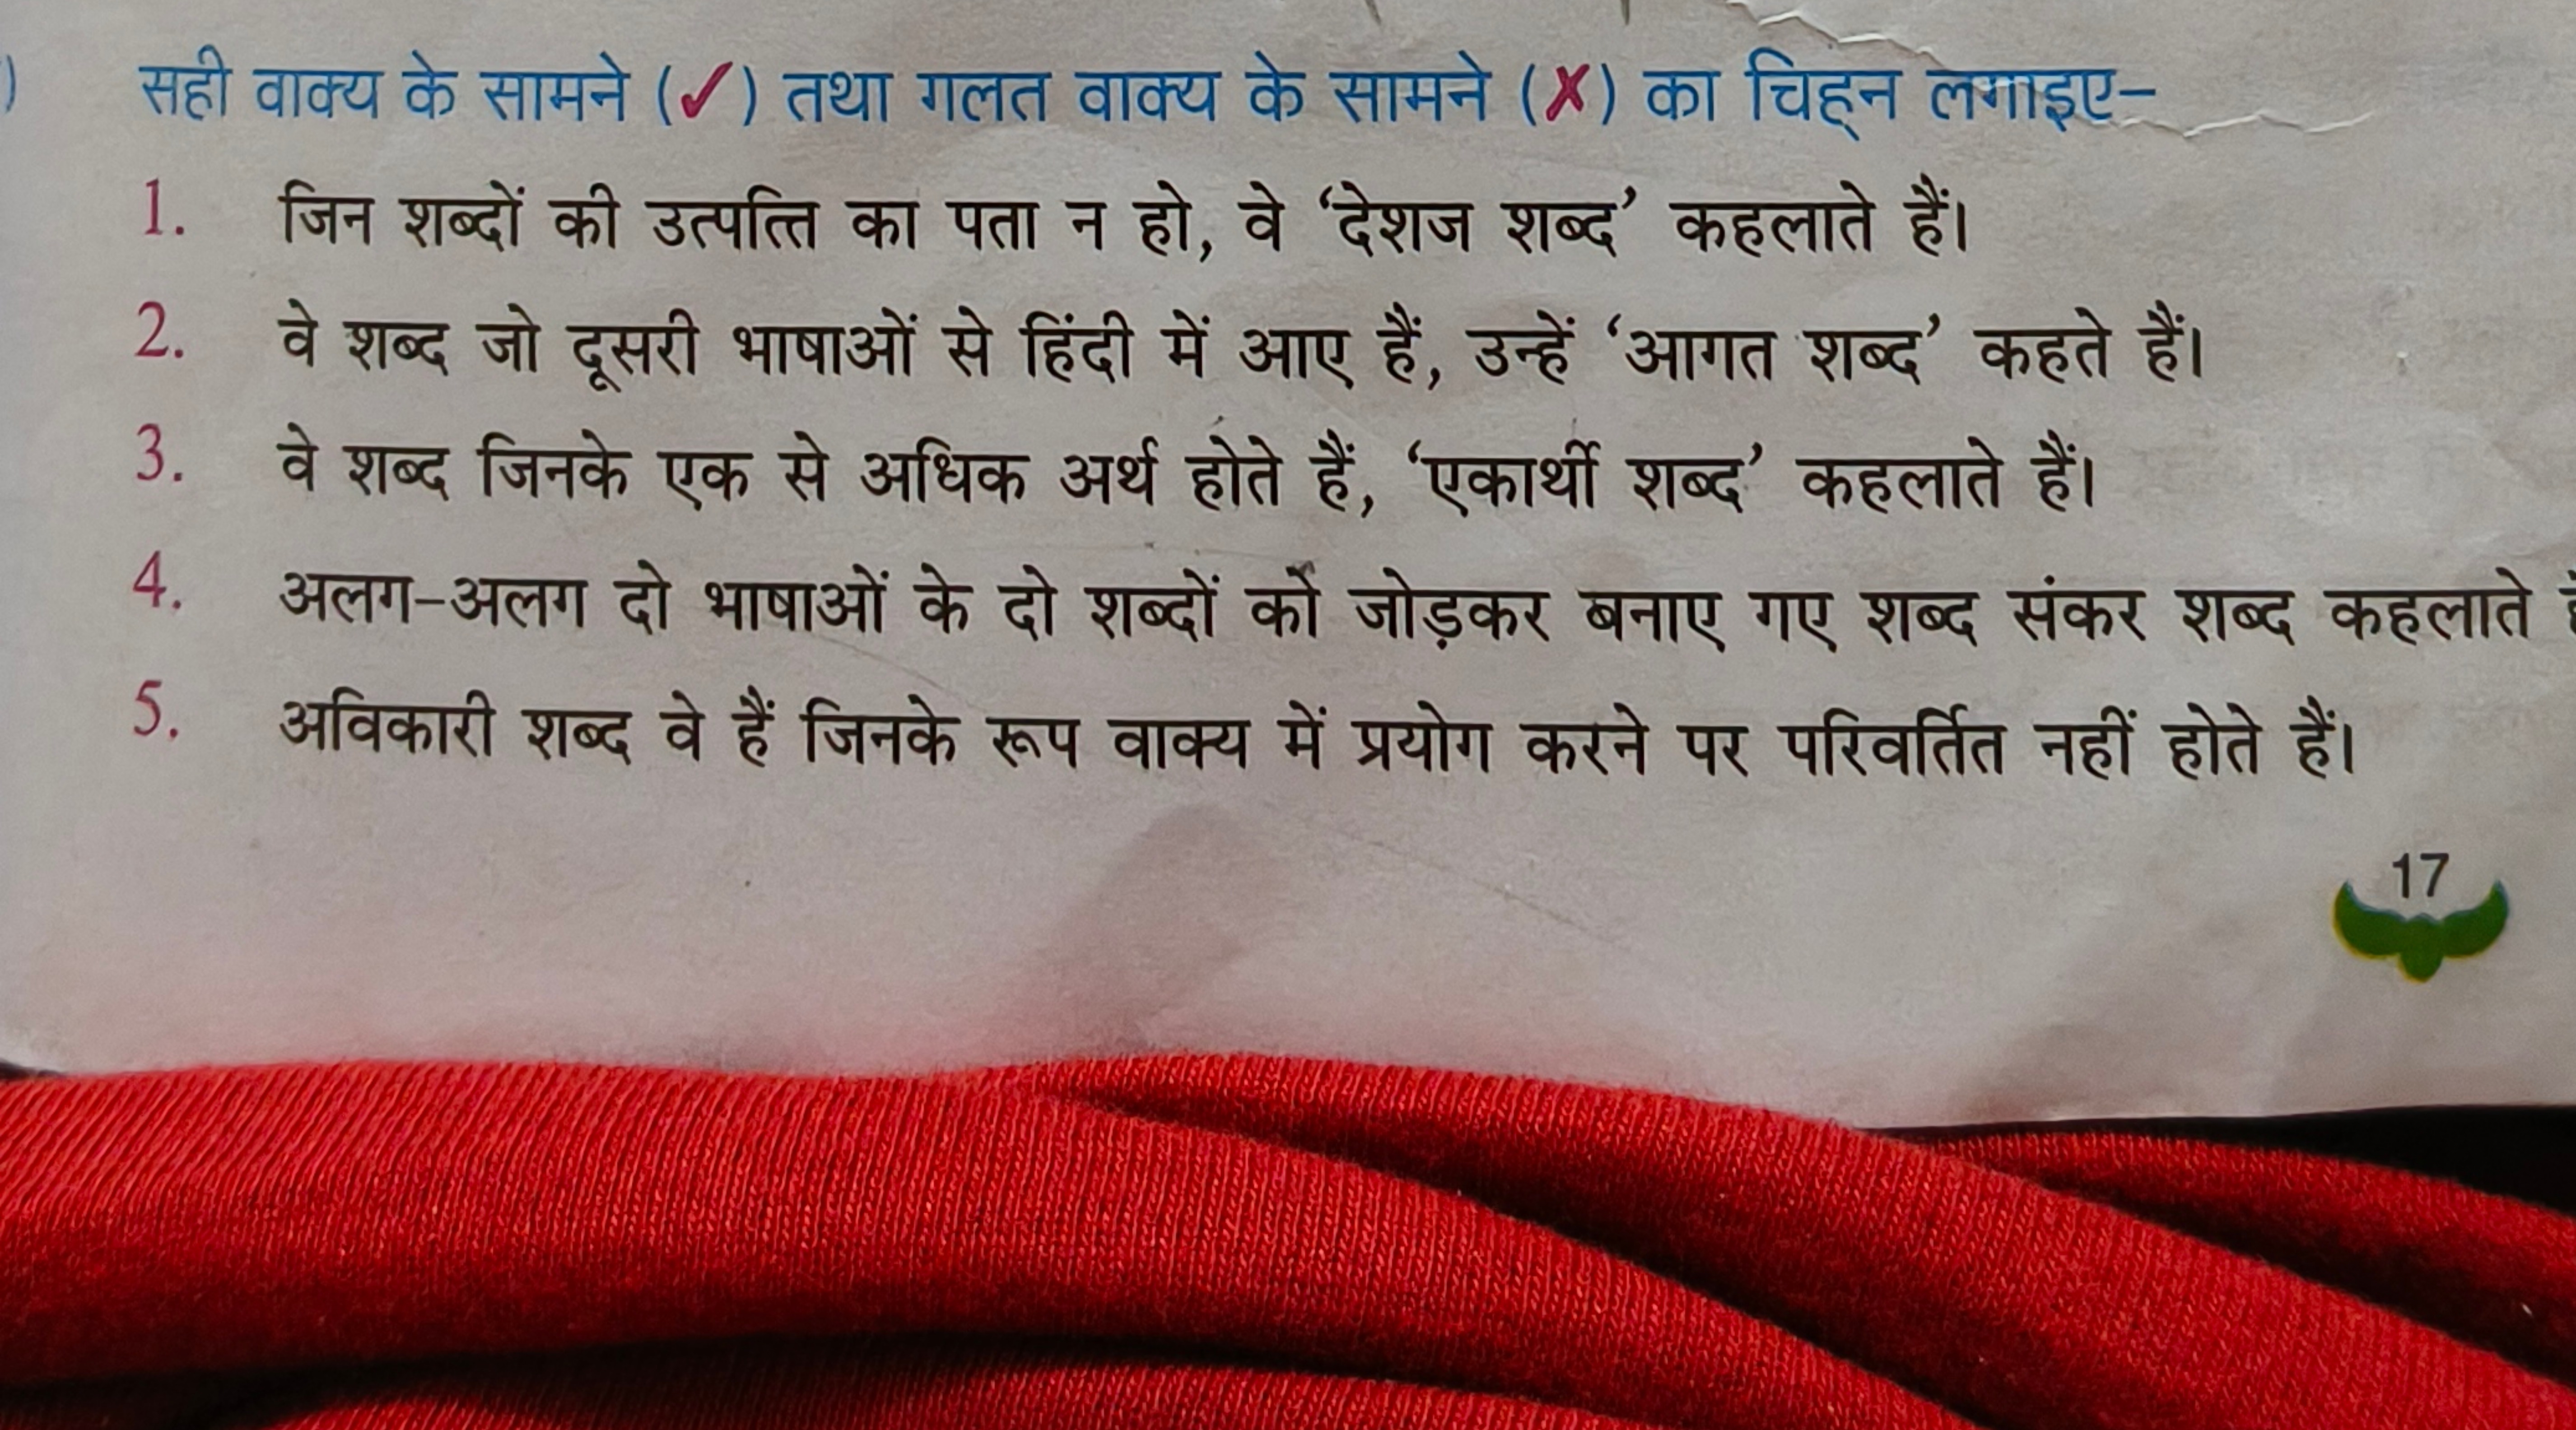 ) सही वाक्य के सामने (✓) तथा गलत वाक्य के सामने (✗) का चिह्न लगाइए–
1. जिन शब्दों की उत्पत्ति का पता न हो, वे ‘देशज शब्द’ कहलाते हैं।
2. वे शब्द जो दूसरी भाषाओं से हिंदी में आए हैं, उन्हें ‘आगत शब्द’ कहते हैं।
3. वे शब्द जिनके एक से अधिक अर्थ होते हैं, ‘एकार्थी शब्द’ कहलाते हैं।
4. अलग-अलग दो भाषाओं के दो शब्दों को जोड़कर बनाए गए शब्द संकर शब्द कहलाते
5. अविकारी शब्द वे हैं जिनके रूप वाक्य में प्रयोग करने पर परिवर्तित नहीं होते हैं।
17